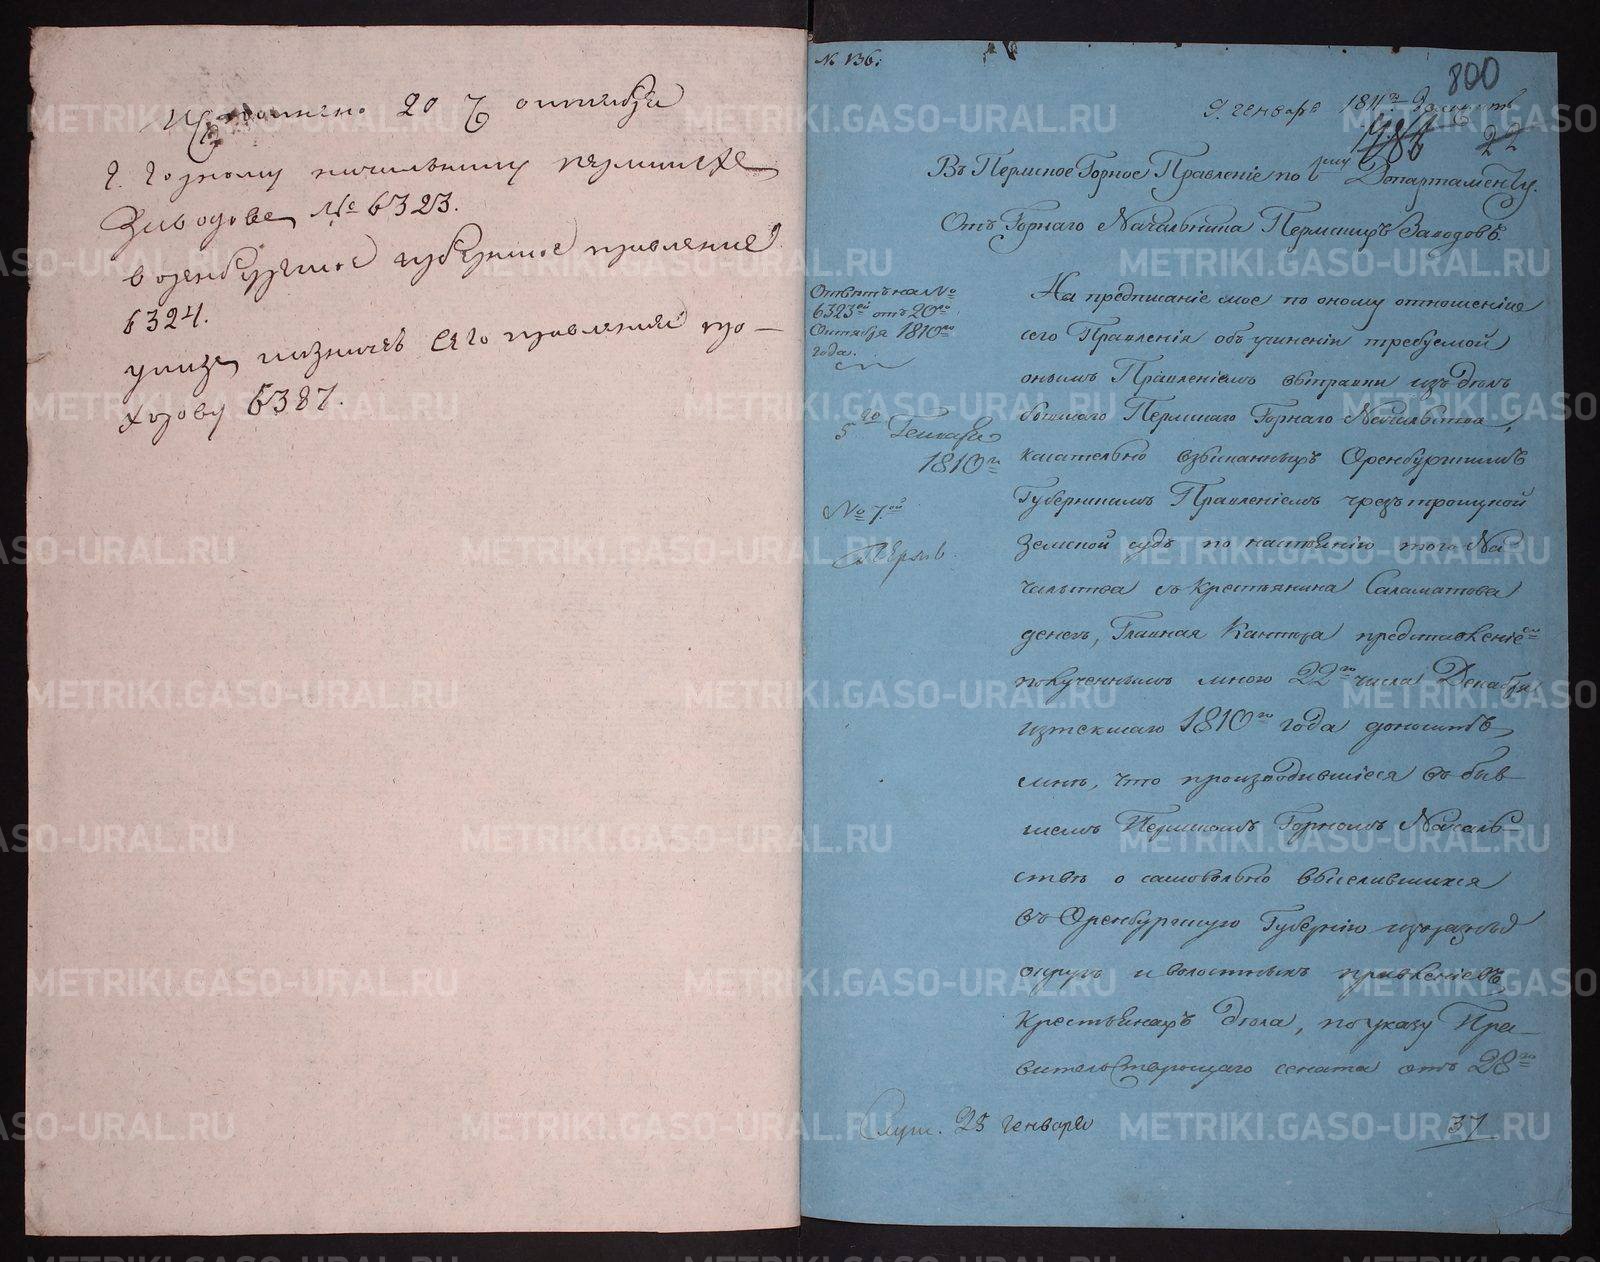 Исполнено 20 7 октября
г. Горному начальнику пермских
Заводов № 6323.
в оренбургское губернское правление
6324.
6387.
№ 136:
800
9. генваря 1811го
22
Въ Пермское Горное Правленіе по Департаменту.
Отъ Горнаго Начальника Пермскихъ Заводовъ.
Ответъ на №
6323й отъ 20го
Октября 1810го
года.
5го Генваря
1810го
№ 7.ой
Пермь.
На предписаніе мое по оному отношенію
сего Правленія объ учиненіи требуемой
онымъ Правленіемъ выправки изъ делъ
бывшаго Пермскаго Горнаго Начальства,
касательно взысканныхъ Оренбургскимъ
Губернскимъ Правленіемъ чрезъ троицкой
Земской судъ по настоянію того На
чальства съ крестьянина Саламатова
денегъ, Главная Кантора представленіемъ
полученнымъ мною 22го числа Декабря
истекшаго 1810го года доноситъ
мнѣ, что производившіеся въ быв
шемъ Пермскомъ Горномъ Началь
ствѣ о самовольно выселившихся
въ Оренбургскую Губернію изъ разныхъ
округъ и волостныхъ правленіевъ
крестьянахъ дела, по указу Пра
вительствующаго сената отъ 28го
Слуш. 25 генваря
37
METRIKI.GASO-URAL.RU